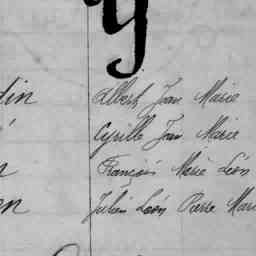 y
din Albert Jean Marie
Cyrille Jean Marie
François Marie Léon
en Julien Léon Pierre Mari